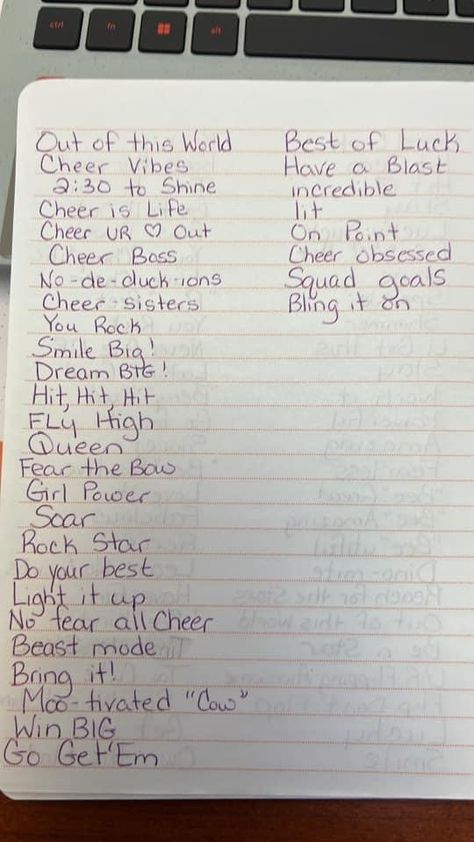 ctrl
fn
alt
Out of this World
Cheer Vibes
2:30 to Shine
Cheer is Life
Cheer UR ♡ Out
Cheer Boss
No-de-duck-ions
Cheer-sisters
You Rock
Smile Big!
Dream BIG!
Hit, Hit, Hit
FLy High
Queen
Fear the Bow
Girl Power
Soar
Rock Star
Do your best
Light it up
No fear all Cheer
Beast mode
Bring it!
Moo-tivated "Cow"
Win BIG
Go Get'Em
Best of Luck
Have a Blast
incredible
lit
On Point
Cheer obsessed
Squad goals
Bling it on